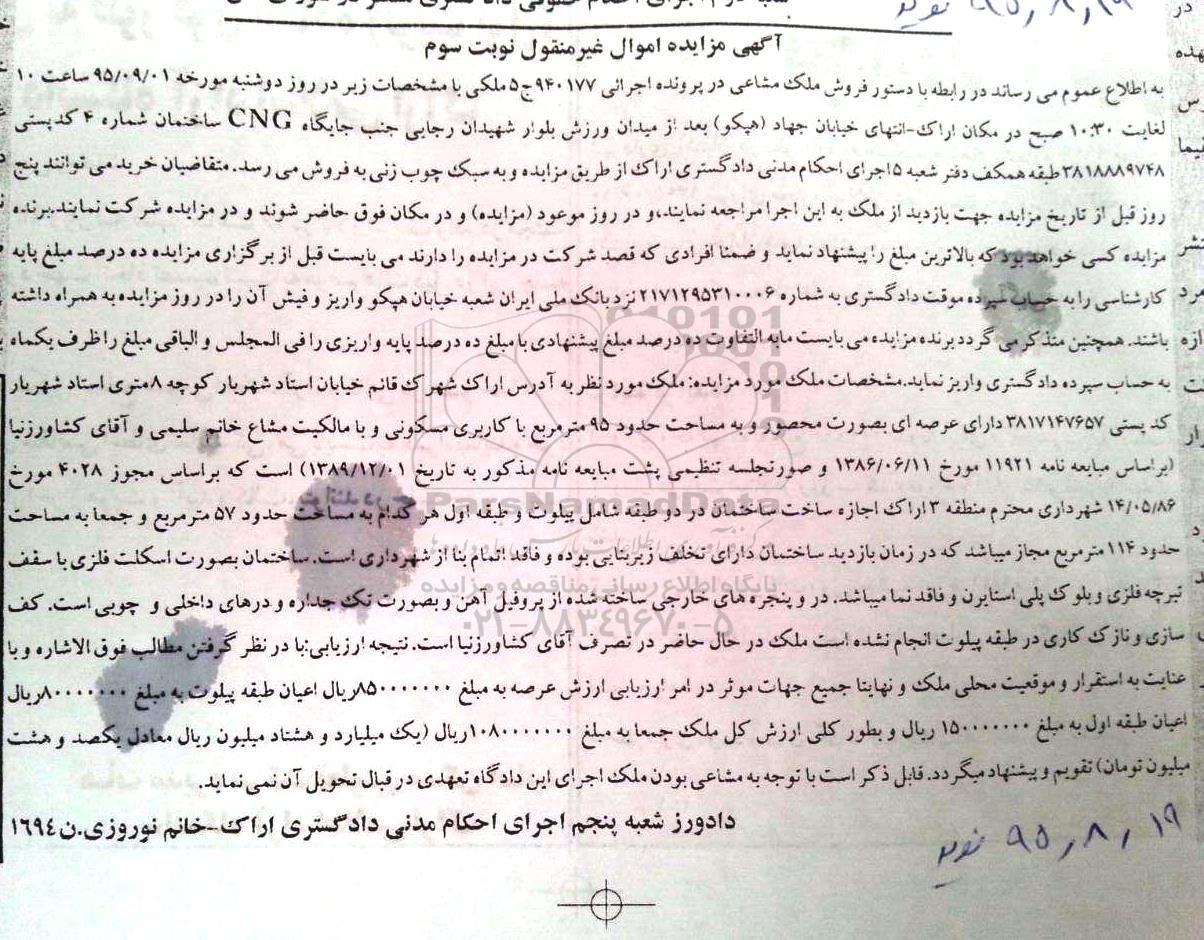 ۹۵٫۸٫۱۹ نوید
آگهی مزایده اموال غیرمنقول نوبت سوم
به اطلاع عموم می رساند در رابطه با دستور فروش ملک مشاعی در پرونده اجرائی ۹۴۰۱۷۷ج۵ملکی با مشخصات زیر در روز دوشنبه مورخه ۹۵/۰۹/۰۱ ساعت ۱۰
لغایت ۱۰:۳۰ صبح در مکان اراک-انتهای خیابان جهاد (هپکو) بعد از میدان ورزش بلوار شهیدان رجایی جنب جایگاه CNG ساختمان شماره ۴ کدپستی
۳۸۱۸۸۸۹۷۴۸ طبقه همکف دفتر شعبه ۵ اجرای احکام مدنی دادگستری اراک از طریق مزایده و به سبک چوب زنی به فروش می رسد. متقاضیان خرید می توانند پنج
روز قبل از تاریخ مزایده جهت بازدید از ملک به این اجرا مراجعه نمایند،و در روز موعود (مزایده) و در مکان فوق حاضر شوند و در مزایده شرکت نمایند.برنده
مزایده کسی خواهد بود که بالاترین مبلغ را پیشنهاد نماید و ضمنا افرادی که قصد شرکت در مزایده را دارند می بایست قبل از برگزاری مزایده ده درصد مبلغ پایه
کارشناسی را به حساب سپرده موقت دادگستری به شماره ۲۱۷۱۲۹۵۳۱۰۰۰۶ نزد بانک ملی ایران شعبه خیابان هپکو واریز و فیش آن را در روز مزایده به همراه داشته
باشند. همچنین متذکر می گردد برنده مزایده می بایست مابه التفاوت ده درصد مبلغ پیشنهادی با مبلغ ده درصد پایه واریزی را فی المجلس و الباقی مبلغ را ظرف یکماه
به حساب سپرده دادگستری واریز نماید.مشخصات ملک مورد مزایده: ملک مورد نظر به آدرس اراک شهرک قائم خیابان استاد شهریار کوچه ۸ متری استاد شهریار
کد پستی ۳۸۱۷۱۴۷۶۵۷ دارای عرصه ای بصورت محصور و به مساحت حدود ۹۵ مترمربع با کاربری مسکونی و با مالکیت مشاع خانم سلیمی و آقای کشاورزنیا
(براساس مبایعه نامه ۱۱۹۲۱ مورخ ۱۳۸۶/۰۶/۱۱ و صورتجلسه تنظیمی پشت مبایعه نامه مذکور به تاریخ ۱۳۸۹/۱۲/۰۱) است که براساس مجوز ۴۰۲۸ مورخ
۱۴/۰۵/۸۶ شهرداری محترم منطقه ۳ اراک اجازه ساخت ساختمان در دو طبقه شامل پیلوت و طبقه اول هر کدام به مساحت حدود ۵۷ مترمربع و جمعا به مساحت
حدود ۱۱۴ مترمربع مجاز میباشد که در زمان بازدید ساختمان دارای تخلف زیربنایی بوده و فاقد اتمام بنا از شهرداری است. ساختمان بصورت اسکلت فلزی با سقف
تیرچه فلزی و بلوک پلی استایرن و فاقد نما میباشد. در و پنجره های خارجی ساخته شده از پروفیل آهن و بصورت تک جداره و درهای داخلی و چوبی است. کف
سازی و نازک کاری در طبقه پیلوت انجام نشده است ملک در حال حاضر در تصرف آقای کشاورزنیا است. نتیجه ارزیابی:با در نظر گرفتن مطالب فوق الاشاره و با
عنایت به استقرار و موقعیت محلی ملک و نهایتا جمیع جهات موثر در امر ارزیابی ارزش عرصه به مبلغ ۸۵۰۰۰۰۰۰۰ریال اعیان طبقه پیلوت به مبلغ ۸۰۰۰۰۰۰۰ریال
اعیان طبقه اول به مبلغ ۱۵۰۰۰۰۰۰۰ ریال و بطور کلی ارزش کل ملک جمعا به مبلغ ۱۰۸۰۰۰۰۰۰۰ریال (یک میلیارد و هشتاد میلیون ریال معادل یکصد و هشت
میلیون تومان) تقویم و پیشنهاد میگردد. قابل ذکر است با توجه به مشاعی بودن ملک اجرای این دادگاه تعهدی در قبال تحویل آن نمی نماید.
دادورز شعبه پنجم اجرای احکام مدنی دادگستری اراک-خانم نوروزی.ن ۱۶۹۴
۹۵٫۸٫۱۹ نوید
ParsNamadData
پایگاه اطلاع رسانی مناقصه و مزایده
۰۲۱-۸۸۳۴۹۶۷۰-۵